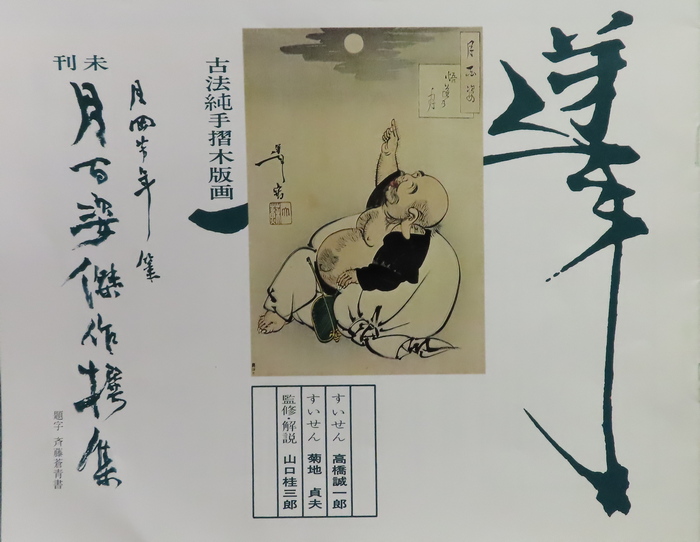 芳年
月百姿
悟道の月
芳年
古法純手摺木版画
月岡芳年筆
未刊
月百姿傑作撰集
題字 斉藤蒼青書
すいせん 高橋誠一郎
すいせん 菊地 貞夫
監修・解説 山口桂三郎